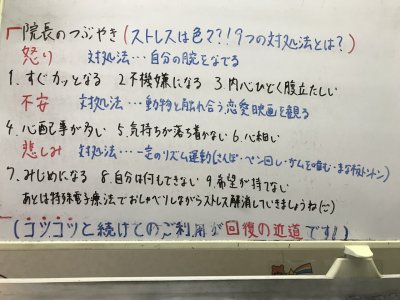 院長のつぶやき(ストレスは色々?!9つの対処法とは?)
怒り 対処法…自分の腕をなでる
1.すぐカッとなる 2.不機嫌になる 3.内心ひどく腹立たしい
不安 対処法…動物と触れ合う恋愛映画を観る
4.心配事が多い 5.気持ちが落ち着かない 6.心細い
悲しみ 対処法…一定のリズム運動(さんぽ・ペン回し・ガムを噛む・まな板トントン)
7.みじめになる 8.自分は何もできない 9.希望が持てない
あとは特殊電子療法でおしゃべりしながらストレス解消していきましょうね(--)
(コツコツと続けてのご利用が回復の近道です!)